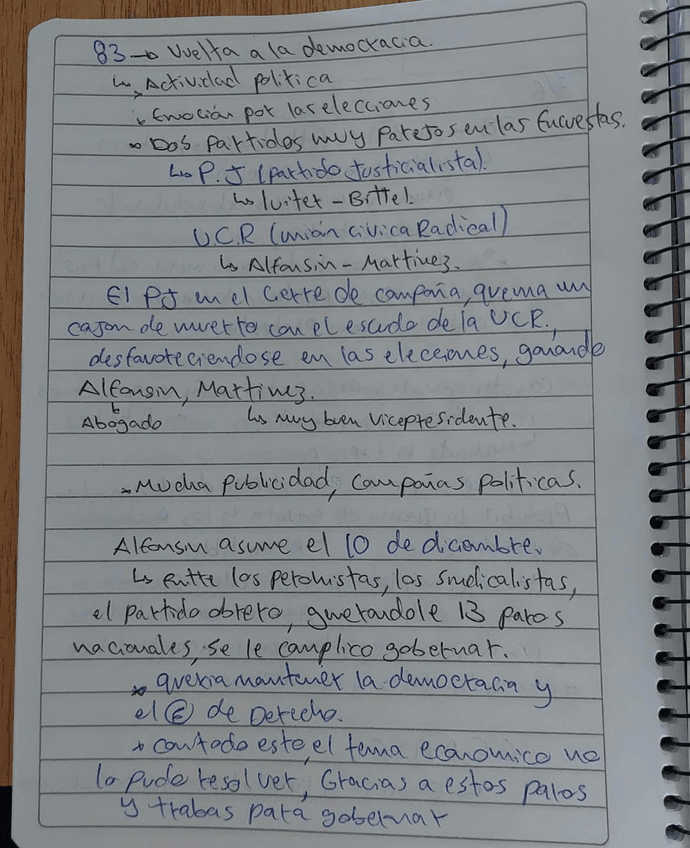 83 → Vuelta a la democracia.
↳ Actividad politica
↳ Emoción por las elecciones
* Dos partidos muy parejos en las Encuestas.
↳ P.J (partido Justicialista).
↳ luiter - Bittel.
U.C.R (unión civica Radical)
↳ Alfonsin - Martinez.
El PJ en el cierre de campaña, quema un
cajon de muerto con el escudo de la UCR.,
desfavoreciendose en las elecciones, ganando
Alfonsin, Martinez.
Abogado ↳ muy buen vicepresidente.
* Mucha Publicidad, campañas politicas.
Alfonsin asume el 10 de diciembre.
↳ Entre los peronistas, los sindicalistas,
el partido obrero, generandole 13 paros
nacionales, se le complico gobernar.
* queria mantener la democracia y
el Ⓔ de Derecho.
* con todo esto, el tema economico no
lo pudo resolver, Gracias a estos paros
y trabas para gobernar